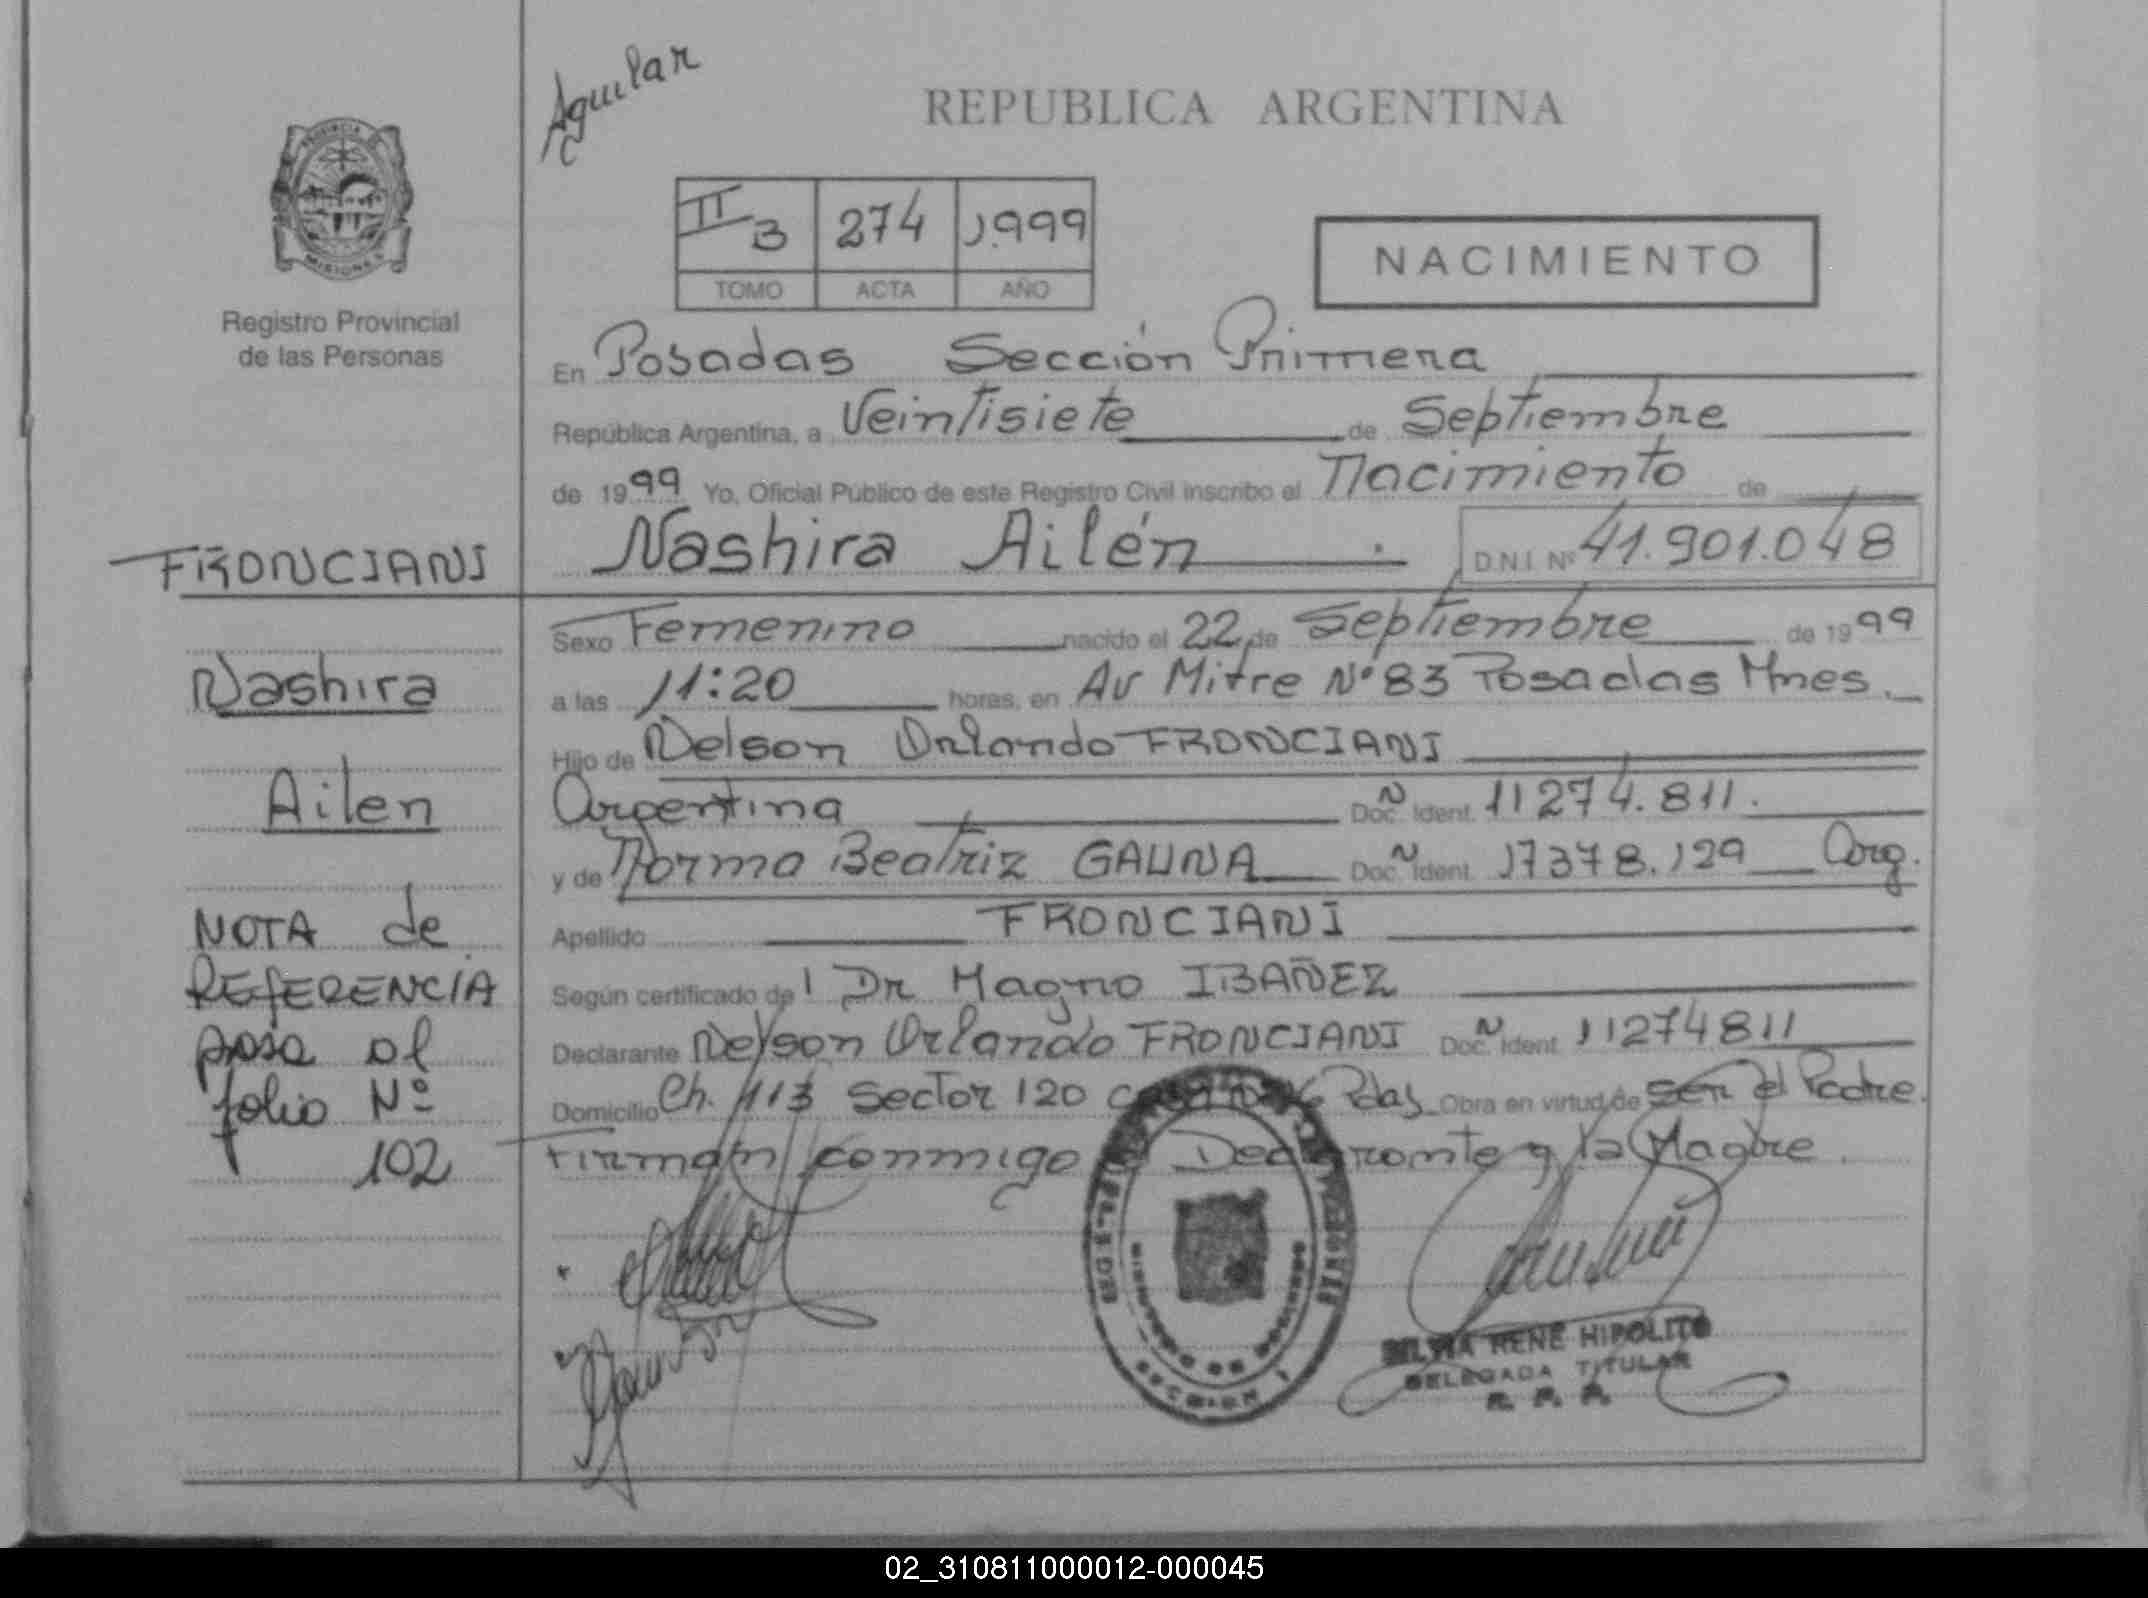 Aguilar
REPUBLICA ARGENTINA
PROVINCIA
MISIONES
Registro Provincial
de las Personas
II B 274 1.999
TOMO ACTA AÑO
NACIMIENTO
En Posadas Sección Primera
República Argentina, a Veintisiete de Septiembre
de 1999 Yo, Oficial Público de este Registro Civil inscribo el Nacimiento de
Nashira Ailén D.N.I. Nº 41.901.048
FRONCIANI
Nashira
Ailen
NOTA de
REFERENCIA
pasa al
folio Nº
102
Sexo Femenino nacido el 22 de Septiembre de 1999
a las 11:20 horas, en Av Mitre Nº 83 Posadas Mnes.
Hijo de Nelson Orlando FRONCIANI
Argentina Doc. Ident. 11274.811.
y de Norma Beatriz GAUNA Doc. Ident. 17378.129 Arg.
Apellido FRONCIANI
Según certificado de l Dr Magno IBAÑEZ
Declarante Nelson Orlando FRONCIANI Doc. Ident. 11274811
Domicilio Ch. 113 Sector 120 Pdas Obra en virtud de ser el Padre
Firman conmigo el Declarante y la Madre.
SECCION 1
SILVIA RENE HIPOLITO
DELEGADA TITULAR
R. P. P.
02_310811000012-000045